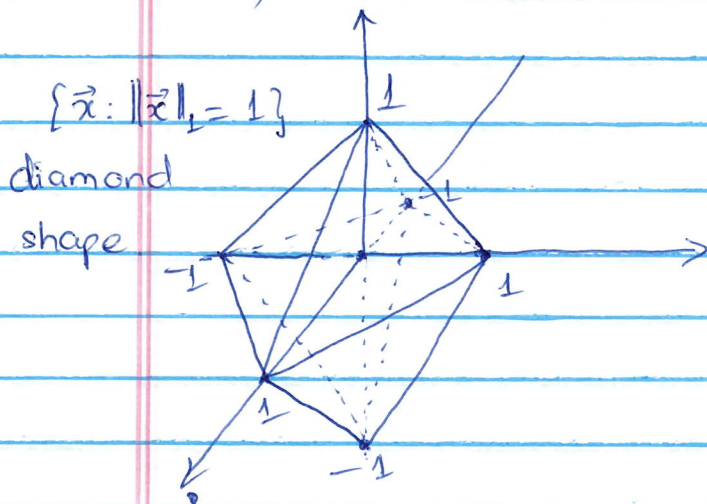 1
{x⃗: ‖x⃗‖₁ = 1}
diamond
-1
shape
-1
1
1
-1